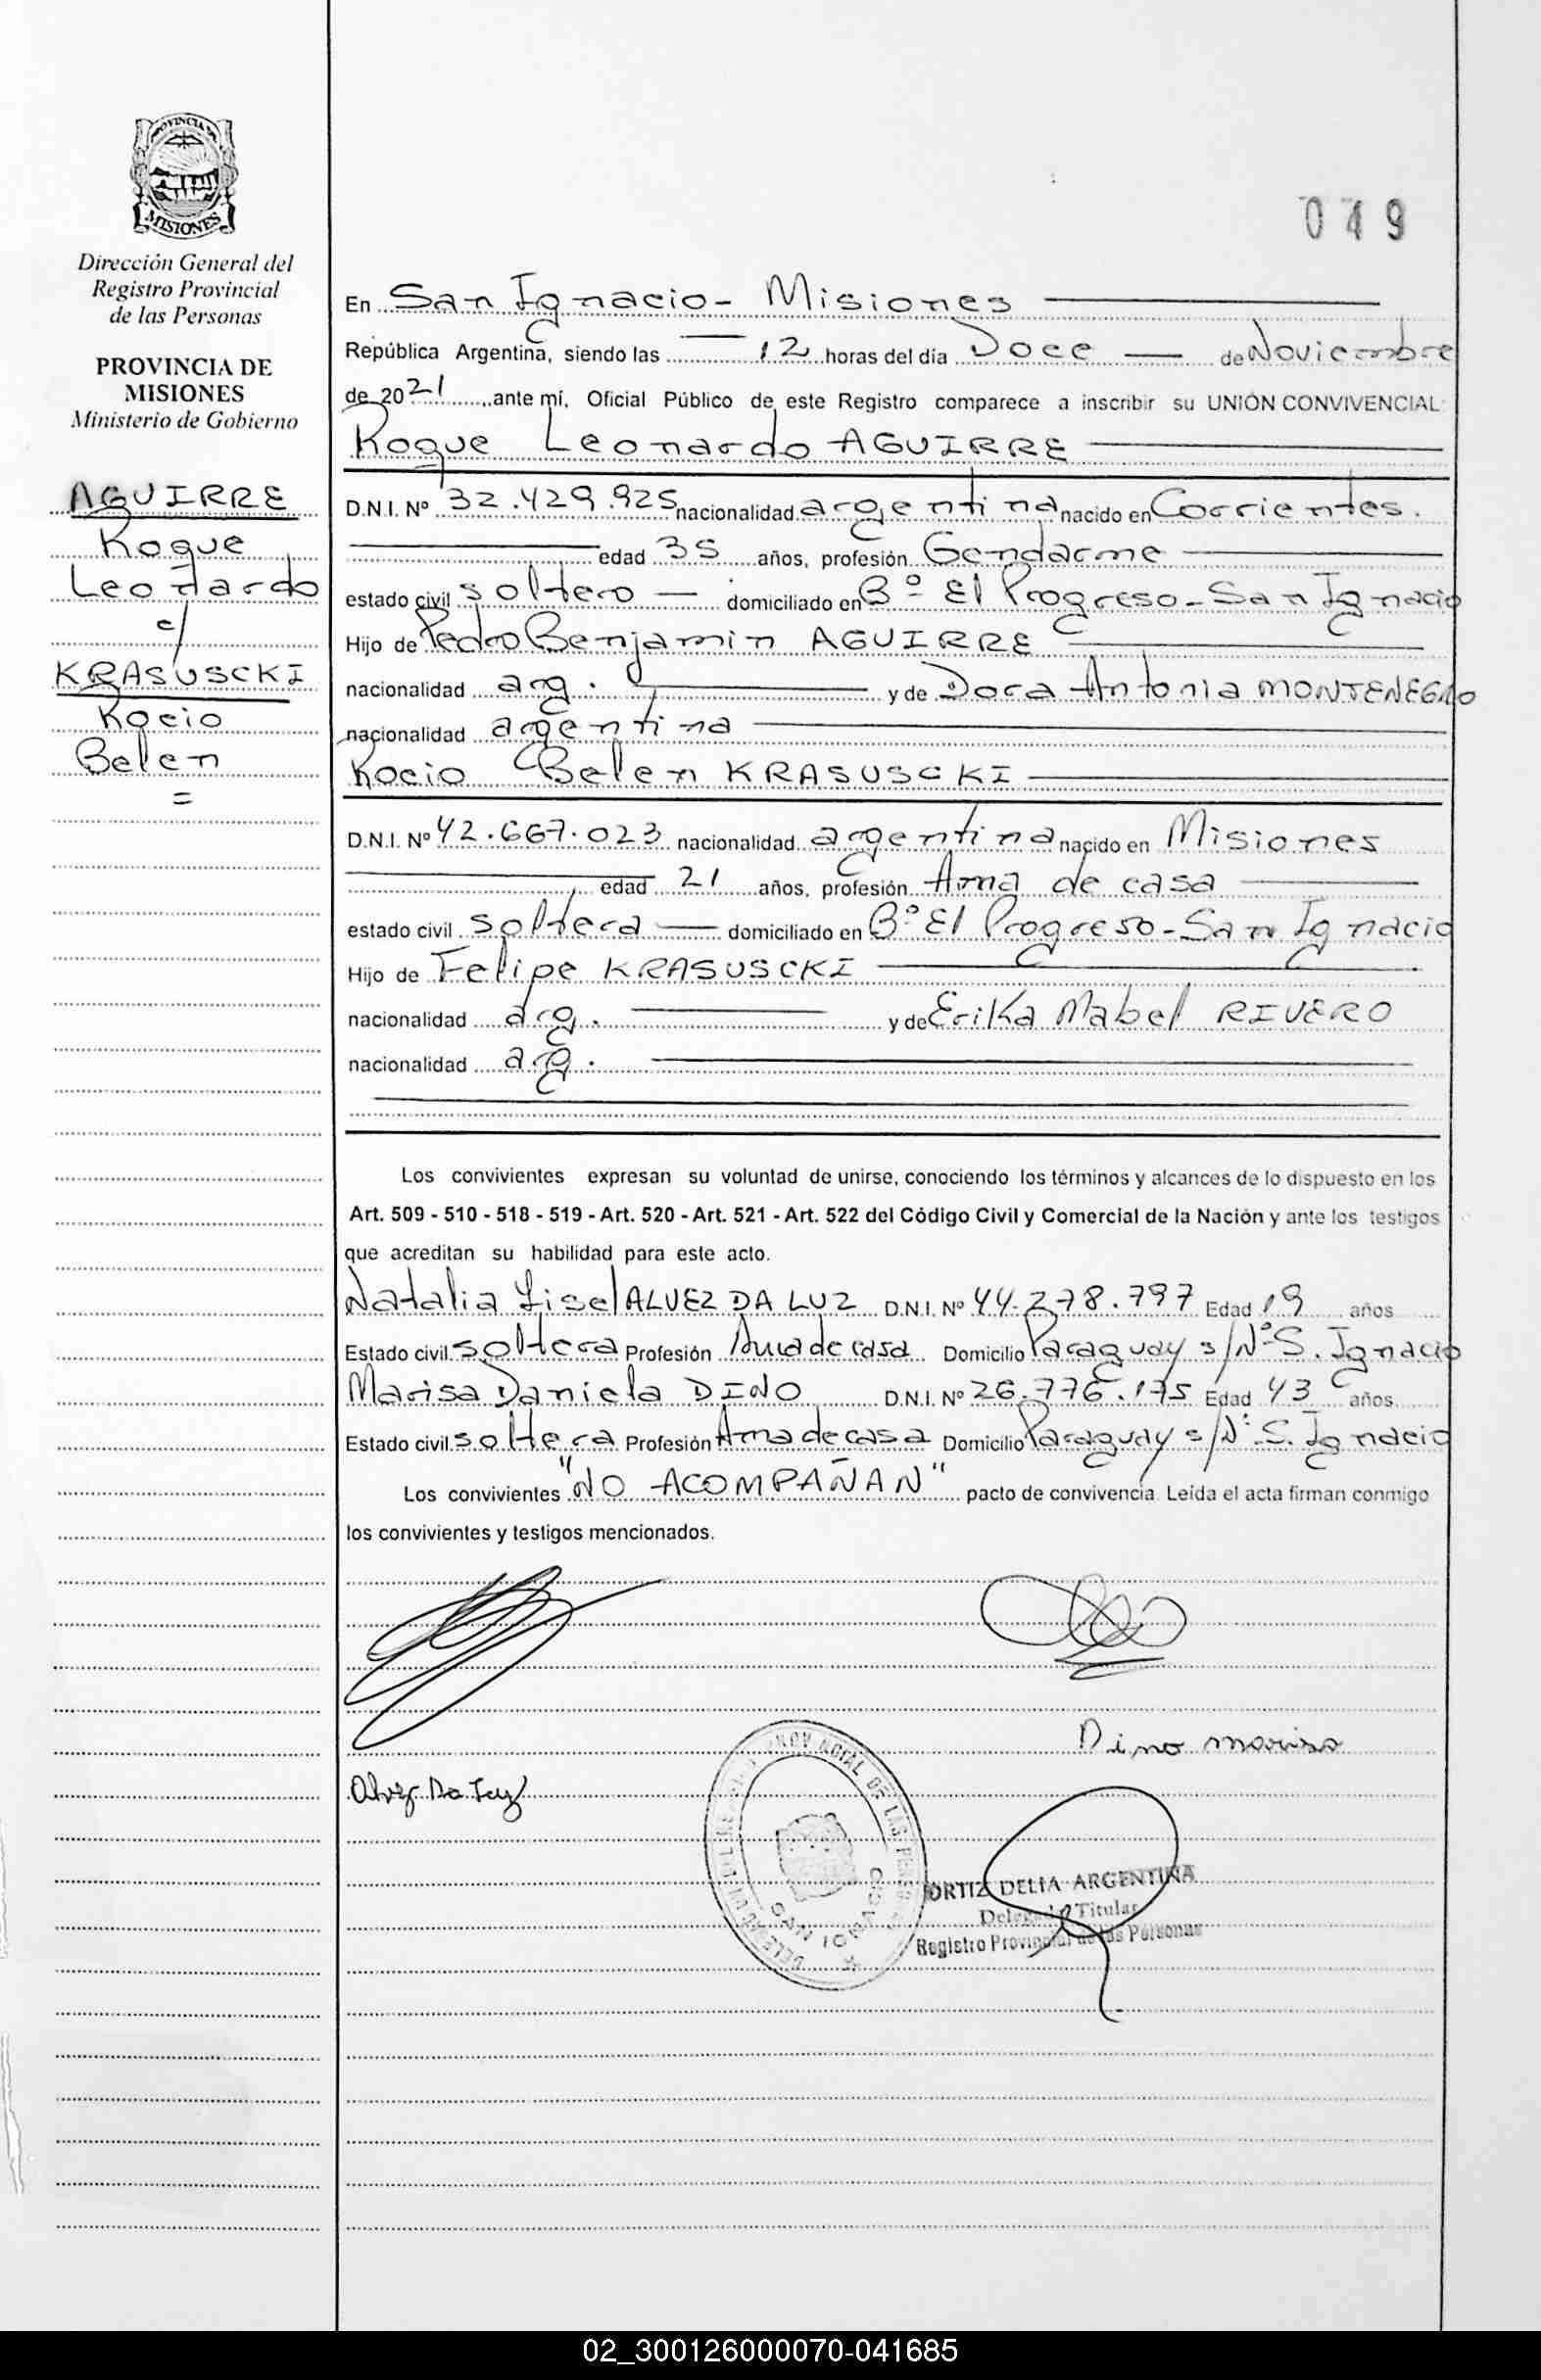 PROVINCIA DE
MISIONES
Dirección General del
Registro Provincial
de las Personas
PROVINCIA DE
MISIONES
Ministerio de Gobierno
AGUIRRE
Roque
Leonardo
c/
KRASUSCKI
Rocio
Belen
=
049
En San Ignacio - Misiones
República Argentina, siendo las 12 horas del día Doce de Noviembre
de 2021 ante mí, Oficial Público de este Registro comparece a inscribir su UNIÓN CONVIVENCIAL
Roque Leonardo AGUIRRE
D.N.I. Nº 32.429.925 nacionalidad argentina nacido en Corrientes.
edad 35 años, profesión Gendarme
estado civil soltero domiciliado en Bº El Progreso - San Ignacio
Hijo de Pedro Benjamin AGUIRRE
nacionalidad arg. y de Dora Antonia MONTENEGRO
nacionalidad argentina
Rocio Belen KRASUSCKI
D.N.I. Nº 42.667.023 nacionalidad argentina nacido en Misiones
edad 21 años, profesión Ama de casa
estado civil soltera domiciliado en Bº El Progreso - San Ignacio
Hijo de Felipe KRASUSCKI
nacionalidad arg. y de Erika Mabel RIVERO
nacionalidad arg.
Los convivientes expresan su voluntad de unirse, conociendo los términos y alcances de lo dispuesto en los
Art. 509 - 510 - 518 - 519 - Art. 520 - Art. 521 - Art. 522 del Código Civil y Comercial de la Nación y ante los testigos
que acreditan su habilidad para este acto.
Natalia Lisel ALVEZ DA LUZ D.N.I. Nº 44.278.797 Edad 19 años
Estado civil soltera Profesión Ama de casa Domicilio Paraguay s/Nº S. Ignacio
Marisa Daniela DINO D.N.I. Nº 26.776.175 Edad 43 años
Estado civil soltera Profesión Ama de casa Domicilio Paraguay s/Nº S. Ignacio
Los convivientes "NO ACOMPAÑAN" pacto de convivencia. Leída el acta firman conmigo
los convivientes y testigos mencionados.
Dino marisa
Alvez Da Luz
SAN IGNACIO
ORTIZ DELIA ARGENTINA
Delegada Titular
Registro Provincial de las Personas
02_300126000070-041685